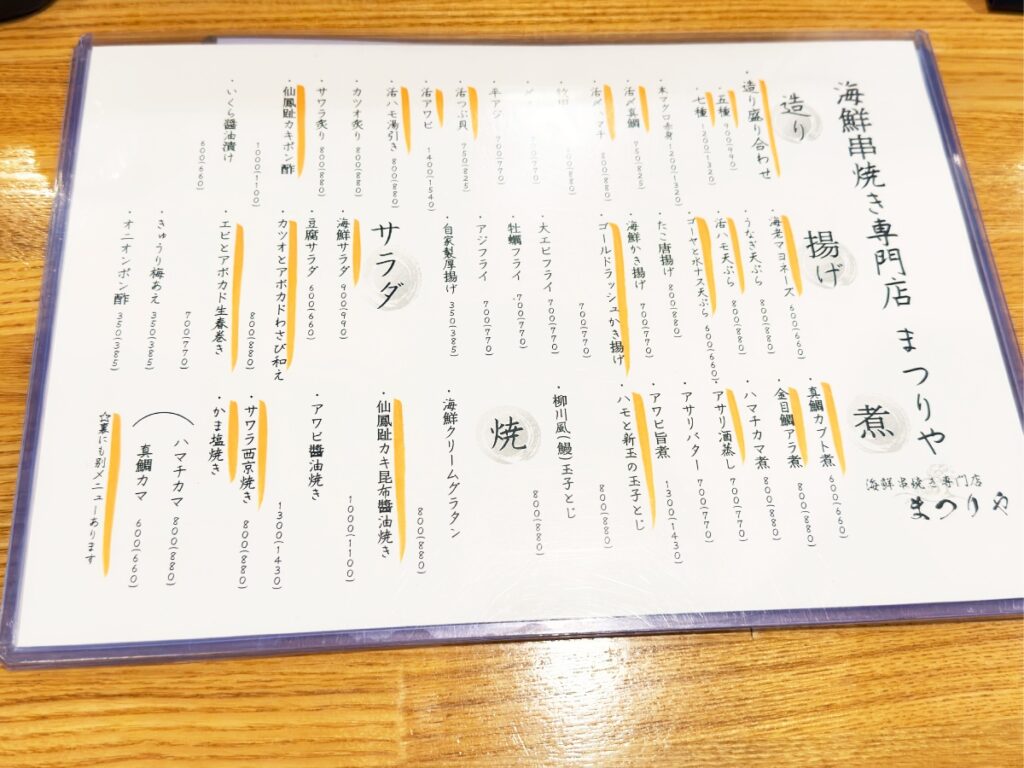 海鮮串焼き専門店 まつりや
造り
・造り盛り合わせ
・五種 900(990)
・七種 1200(1320)
・本マグロ赤身 1200(1320)
・活〆真鯛 750(825)
・活〆ハマチ 800(880)
700(770)
・平アジ 700(770)
・活つぶ貝 750(825)
・活アワビ 1400(1540)
・活ハモ湯引き 800(880)
・カツオ炙り 800(880)
・サワラ炙り 800(880)
・仙鳳趾カキポン酢 1000(1100)
・いくら醬油漬け 600(660)
揚げ
・海老マヨネーズ 600(660)
・うなぎ天ぷら 800(880)
・活ハモ天ぷら 800(880)
・ゴーヤと水ナス天ぷら 600(660)
・たこ唐揚げ 800(880)
・海鮮かき揚げ 700(770)
・ゴールドラッシュかき揚げ 700(770)
・大エビフライ 700(770)
・牡蠣フライ 700(770)
・アジフライ 700(770)
・自家製厚揚げ 350(385)
サラダ
・海鮮サラダ 900(990)
・豆腐サラダ 600(660)
・カツオとアボカドわさび和え 800(880)
・エビとアボカド生春巻き 700(770)
・きゅうり梅あえ 350(385)
・オニオンポン酢 350(385)
煮
・真鯛カブト煮 600(660)
・金目鯛アラ煮 800(880)
・ハマチカマ煮 700(770)
・アサリ酒蒸し 700(770)
・アサリバター 700(770)
・アワビ旨煮 1300(1430)
・ハモと新玉の玉子とじ 800(880)
・柳川風(鰻)玉子とじ 800(880)
焼
・海鮮クリームグラタン 800(880)
・仙鳳趾カキ昆布醬油焼き 1000(1100)
・アワビ醬油焼き 1300(1430)
・サワラ西京焼き 800(880)
・かま塩焼き
ハマチカマ 800(880)
真鯛カマ 600(660)
☆裏にも別メニューあります
海鮮串焼き専門店
まつりや